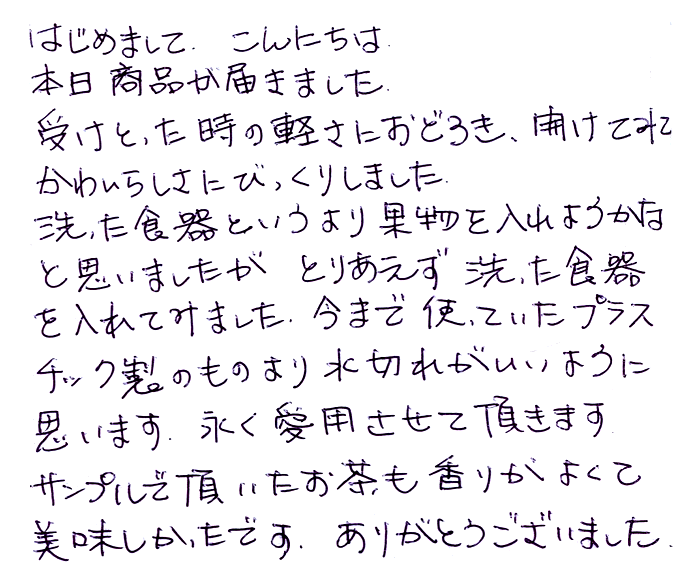 はじめまして. こんにちは.
本日商品が届きました.
受けとった時の軽さにおどろき、開けてみて
かわいらしさにびっくりしました.
洗った食器というより果物を入れようかな
と思いましたが とりあえず洗った食器
を入れてみました. 今まで使っていたプラス
チック製のものより水切れがいいように
思います. 永く愛用させて頂きます
サンプルで頂いたお茶も香りがよくて
美味しかったです. ありがとうございました.